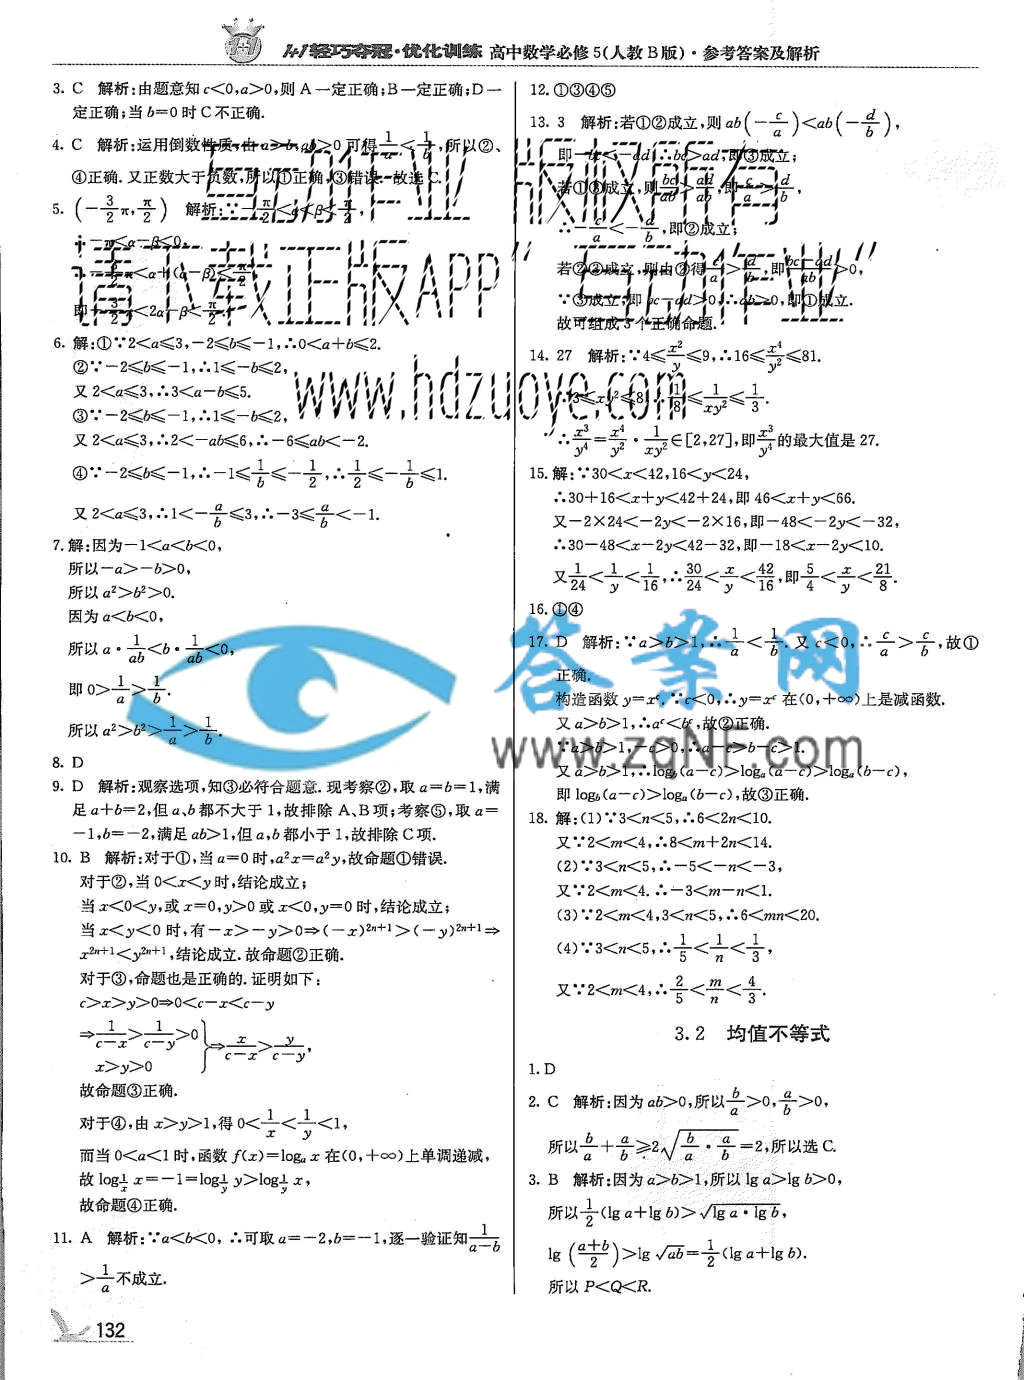 1+1轻巧夺冠·优化训练 高中数学必修5(人教B版)·参考答案及解析
3. C 解析:由题意知c<0,a>0,则A一定正确;B一定正确;D一
定正确;当b=0时C不正确.
4. C 解析:运用倒数性质,由a>b,ab>0可得1/a<1/b,所以②、
④正确.又正数大于负数,所以①正确,③错误.故选C.
5. (-3/2π,π/2) 解析:∵-π/2<α<β<π/2,
∴-π<α-β<0,
即-3/2π<2α-β<π/2.
6. 解:①∵2<a≤3,-2≤b≤-1,∴0<a+b≤2.
②∵-2≤b≤-1,∴1≤-b≤2,
又2<a≤3,∴3<a-b≤5.
③∵-2≤b≤-1,∴1≤-b≤2,
又2<a≤3,∴2<-ab≤6,∴-6≤ab<-2.
④∵-2≤b≤-1,∴-1≤1/b≤-1/2,∴1/2≤-1/b≤1.
又2<a≤3,∴1<-a/b≤3,∴-3≤a/b<-1.
7.解:因为-1<a<b<0,
所以-a>-b>0,
所以a²>b²>0.
因为a<b<0,
所以a·1/ab<b·1/ab<0,
即0>1/a>1/b.
所以a²>b²>1/a>1/b.
8. D
9. D 解析:观察选项,知③必符合题意.现考察②,取a=b=1,满
足a+b=2,但a、b都不大于1,故排除A、B项;考察⑤,取a=
-1,b=-2,满足ab>1,但a,b都小于1,故排除C项.
10. B 解析:对于①,当a=0时,a²x=a²y,故命题①错误.
对于②,当0<x<y时,结论成立;
当x<0<y,或x=0,y>0或x<0,y=0时,结论成立;
当x<y<0时,有-x>-y>0⇒(-x)²ⁿ⁺¹>(-y)²ⁿ⁺¹⇒
x²ⁿ⁺¹<y²ⁿ⁺¹,结论成立.故命题②正确.
对于③,命题也是正确的.证明如下:
c>x>y>0⇒0<c-x<c-y
⇒1/(c-x)>1/(c-y)>0
x>y>0
}⇒x/(c-x)>y/(c-y),
故命题③正确.
对于④,由x>y>1,得0<1/x<1/y<1,
而当0<a<1时,函数f(x)=logₐx在(0,+∞)上单调递减,
故log_(1/x) x=-1=log_(1/y) y>log_(1/y) x,
故命题④正确.
11. A 解析:∵a<b<0,∴可取a=-2,b=-1,逐一验证知1/(a-b)
>1/a不成立.
132
12.①③④⑤
13. 3 解析:若①②成立,则ab(-c/a)<ab(-d/b),
即-bc<-ad,∴bc>ad,即③成立;
若①③成立,则bc/ab>ad/ab,即c/a>d/b,
∴-c/a<-d/b,即②成立;
若②③成立,则由②得c/a>d/b,即(bc-ad)/ab>0,
∵③成立,即bc-ad>0,∴ab>0,即①成立.
故可组成3个正确命题.
14. 27 解析:∵4≤x²/y≤9,∴16≤x⁴/y²≤81.
∵3≤xy²≤8,∴1/8≤1/xy²≤1/3.
∴x³/y⁴=x⁴/y²·1/xy²∈[2,27],即x³/y⁴的最大值是27.
15.解:∵30<x<42,16<y<24,
∴30+16<x+y<42+24,即46<x+y<66.
又-2×24<-2y<-2×16,即-48<-2y<-32,
∴30-48<x-2y<42-32,即-18<x-2y<10.
又1/24<1/y<1/16,∴30/24<x/y<42/16,即5/4<x/y<21/8.
16.①④
17. D 解析:∵a>b>1,∴1/a<1/b.又c<0,∴c/a>c/b,故①
正确.
构造函数y=xᶜ.∵c<0,∴y=xᶜ在(0,+∞)上是减函数.
又a>b>1,∴aᶜ<bᶜ,故②正确.
∵a>b>1,-c>0,∴a-c>b-c>1.
又a>b>1,∴log_b(a-c)>log_a(a-c)>log_a(b-c),
即log_b(a-c)>log_a(b-c),故③正确.
18. 解:(1)∵3<n<5,∴6<2n<10.
又∵2<m<4,∴8<m+2n<14.
(2)∵3<n<5,∴-5<-n<-3,
又∵2<m<4.∴-3<m-n<1.
(3)∵2<m<4,3<n<5,∴6<mn<20.
(4)∵3<n<5,∴1/5<1/n<1/3,
又∵2<m<4,∴2/5<m/n<4/3.
3.2 均值不等式
1. D
2. C 解析:因为ab>0,所以b/a>0,a/b>0,
所以b/a+a/b≥2√(b/a·a/b)=2,所以选C.
3. B 解析:因为a>b>1,所以lg a>lg b>0,
所以1/2(lg a+lg b)>√(lg a·lg b),
lg((a+b)/2)>lg √ab=1/2(lg a+lg b).
所以P<Q<R.
互动作业 版权所有
请下载正版APP"互动作业"
www.hdzuoye.com
答案网
www.zqNF.com